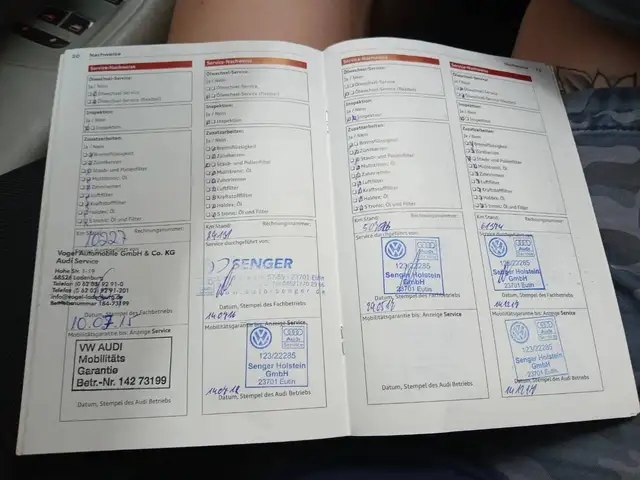 20 Nachweise
Service-Nachweise
Ölwechsel-Service:
Ja / Nein
Ölwechsel-Service
Ölwechsel-Service (flexibel)
Inspektion:
Ja / Nein
Inspektion
Zusatzarbeiten:
Ja / Nein
Bremsflüssigkeit
Zündkerzen
Staub- und Pollenfilter
Multitronic: Öl
Zahnriemen
Luftfilter
Kraftstofffilter
Haldex: Öl
S tronic: Öl und Filter
Km Stand: Rechnungsnummer:
Vogel Automobile GmbH & Co. KG
Audi Service
68526 Ladenburg
Datum, Stempel des Fachbetriebs
10.07.15
Mobilitätsgarantie bis: Anzeige Service
VW AUDI
Mobilitäts
Garantie
Betr.-Nr. 142 73199
Datum, Stempel des Audi Betriebs
Service-Nachweise
Ölwechsel-Service:
Ja / Nein
Ölwechsel-Service
Ölwechsel-Service (flexibel)
Inspektion:
Ja / Nein
Inspektion
Zusatzarbeiten:
Ja / Nein
Bremsflüssigkeit
Zündkerzen
Staub- und Pollenfilter
Multitronic: Öl
Zahnriemen
Luftfilter
Kraftstofffilter
Haldex: Öl
S tronic: Öl und Filter
Km Stand: Rechnungsnummer:
Service durchgeführt von:
SENGER
23701 Eutin
Datum, Stempel des Fachbetriebs
Mobilitätsgarantie bis: Anzeige Service
Audi
Service
123/22285
Senger Holstein
GmbH
23701 Eutin
Datum, Stempel des Audi Betriebs
Service-Nachweise
Ölwechsel-Service:
Ja / Nein
Ölwechsel-Service
Ölwechsel-Service (flexibel)
Inspektion:
Ja / Nein
Inspektion
Zusatzarbeiten:
Ja / Nein
Bremsflüssigkeit
Zündkerzen
Staub- und Pollenfilter
Multitronic: Öl
Zahnriemen
Luftfilter
Kraftstofffilter
Haldex: Öl
S tronic: Öl und Filter
Km Stand: Rechnungsnummer:
Service durchgeführt von:
Audi
Service
123/22285
Senger Holstein
GmbH
23701 Eutin
Datum, Stempel des Fachbetriebs
Mobilitätsgarantie bis: Anzeige Service
Datum, Stempel des Audi Betriebs
Nachweise
Service-Nachweise
Ölwechsel-Service:
Ja / Nein
Ölwechsel-Service
Ölwechsel-Service (flexibel)
Inspektion:
Ja / Nein
Inspektion
Zusatzarbeiten:
Ja / Nein
Bremsflüssigkeit
Zündkerzen
Staub- und Pollenfilter
Multitronic: Öl
Zahnriemen
Luftfilter
Kraftstofffilter
Haldex: Öl
S tronic: Öl und Filter
Km Stand: Rechnungsnummer:
Service durchgeführt von:
Audi
Service
123/22285
Senger Holstein
GmbH
23701 Eutin
Datum, Stempel des Fachbetriebs
Mobilitätsgarantie bis: Anzeige Service
Audi
Service
123/22285
Senger Holstein
GmbH
23701 Eutin
Datum, Stempel des Audi Betriebs